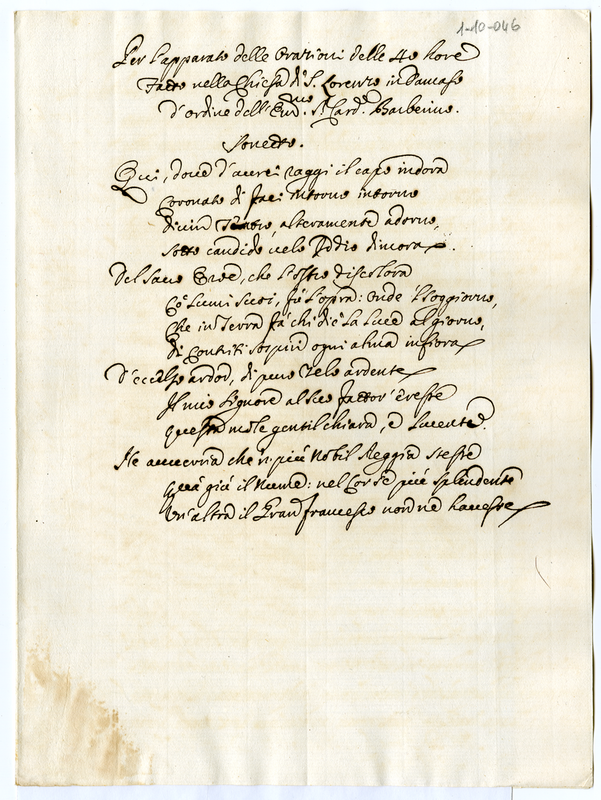 1-10-046
Per l'apparato delle Orazioni delle 40 hore
Fatto nella Chiesa di S. Lorenzo in Damaso
d'ordine dell'Em.mo S.r Card.e Barberino.
Sonetto.
Qui, dove d'aurei raggi il capo indora
Coronato di faci intorno intorno
divin Tempio, alteramente adorno,
sotto candido velo Iddio dimora.
Del sacro Eroe, che l'ostro discolora
Co' Lumi suoi, fù l'opra: onde il soggiorno,
Che in Terra fà chi diè la Luce al giorno,
di Contriti sospiri ogni alma infiora
D'eccelso ardor, di puro Zelo ardente
Il mio Signore al suo fattor' eresse
questa mole gentil chiara, e Lucente.
Ne avverria che in più Nobil Reggia stesse
quà giù il Nume: nel Cor sè più splendente
Un'altra il Gran Francesco non ne havesse